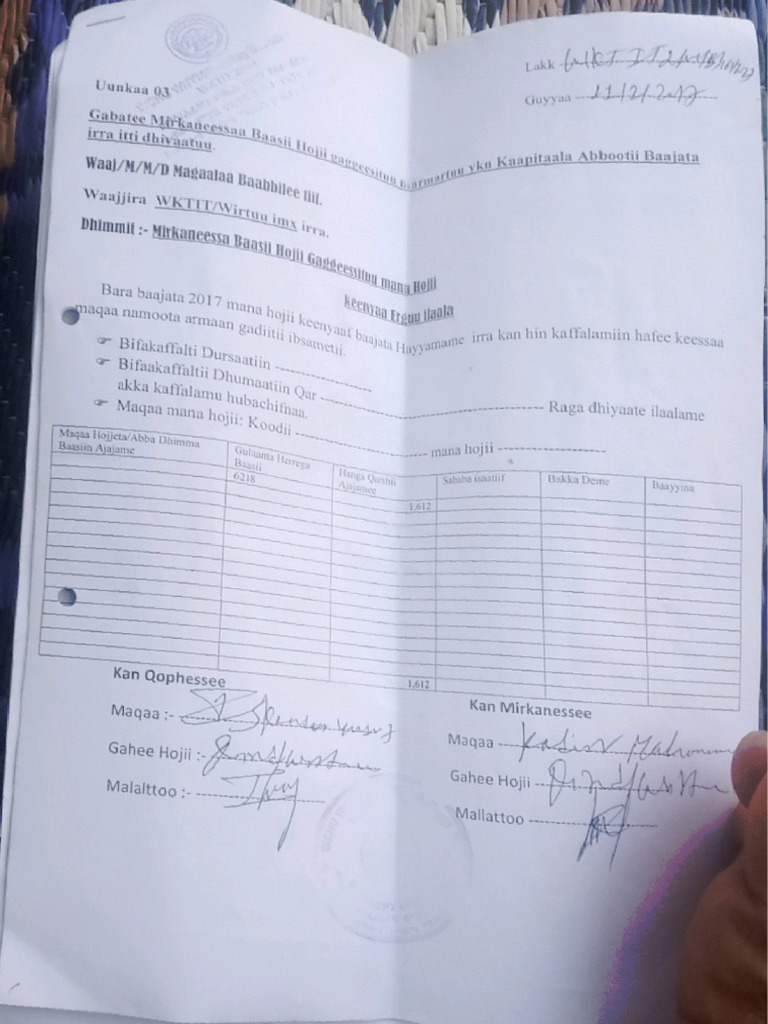 Lakk
Guyyaa 11/2/2017
Uunkaa 03
Gabatee Mirkaneessaa Baasii Hojii gaggeesituu ykn Kaapitaala Abbootii Baajata
irra itti dhiyaatuu.
Waaj/M/M/D Magaalaa Baabbilee tiif.
Waajjira WKTIT/Wirtuu imx irra.
Dhimmit :- Mirkaneessa Baasii Hojii Gaggeessituu mana Hojii
keenyaa Erguu ilaala
Bara baajata 2017 mana hojii keenyaaf baajata Hayyamame irra kan hin kaffalamiin hafee keessaa
maqaa namoota armaan gadiitii ibsametii.
☞ Bifakaffalti Dursaatiin ------------------
☞ Bifaakaffaltii Dhumaatiin Qar ------------------------------------------ Raga dhiyaate ilaalame
akka kaffalamu hubachifnaa.
☞ Maqaa mana hojii: Koodii ------------------------ mana hojii --------------------
Maqaa Hojjeta/Abba Dhimma Baasiin Ajajame Gulaanta Herrega Baasii Hanga Qarshii Ajajamee Sababa isaatiif Bakka Deme Baayyina
6218 1,612
1,612
Kan Qophessee Kan Mirkanessee
Maqaa :-
Maqaa
Gahee Hojii :-
Gahee Hojii
Malalttoo :-
Mallattoo